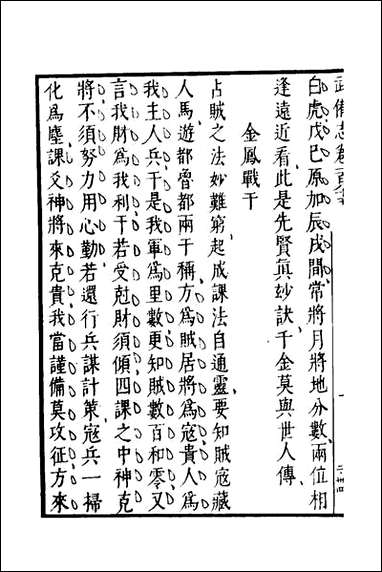 武備志卷一百
白虎戊巳原加辰戌間常將月將地分數兩位相
逢遠近看此是先賢眞妙訣千金莫與世人傳
金鳳戰干
占賊之法妙難窮起成課法自通靈要知賊寇藏
人馬遊都魯都兩干稱方爲賊居將爲寇貴人爲
我主人兵干是我軍爲里數更知賊數百和零又
言我財爲我利干若受尅財須傾四課之中神克
將不須努力用心勤若還行兵謀計策寇兵一掃
化爲塵課爻神將來克貴我當謹備莫攻征方來